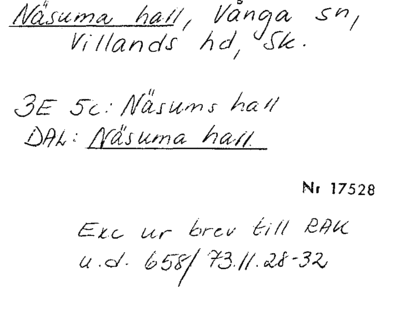 Näsuma hall, Vånga sn,
Villands hd, Sk.
3E 5c: Näsums hall
DAL: Näsuma hall.
Nr 17528
Exc ur brev till RAK
u.d. 658/73.11.28-32